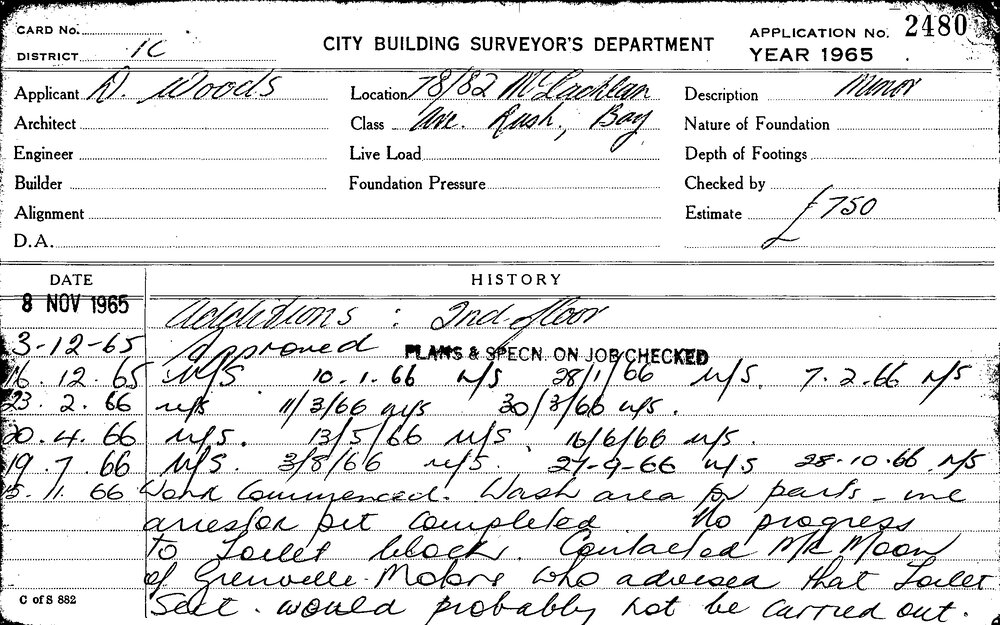 CARD No.
DISTRICT 1C
CITY BUILDING SURVEYOR'S DEPARTMENT
APPLICATION No. 2480
YEAR 1965
Applicant D. Woods
Location 78/82 McLachlan
Description Minor
Architect
Class Ave. Rush. Bay
Nature of Foundation
Engineer
Live Load
Depth of Footings
Builder
Foundation Pressure
Checked by
Alignment
Estimate £750
D.A.
DATE HISTORY
8 NOV 1965 Additions : 2nd floor
3-12-65 Approved PLANS & SPECN. ON JOB CHECKED
16.12.65 N/S 10.1.66 N/S 28/1/66 N/S. 7.2.66 N/S
23.2.66 N/S 11/3/66 N/S 30/3/66 N/S.
20.4.66 N/S. 13/5/66 N/S. 16/6/66 N/S.
19.7.66 N/S. 3/8/66 N/S. 27-9-66 N/S 28-10-66 N/S
11.66 Work Commenced. Wash area for parts -
arrestor pit completed. No progress
to Toilet block. Contacted Mr Moon
of Grenville Motors who advised that Toilet
Sect. would probably not be carried out.
C of S 882